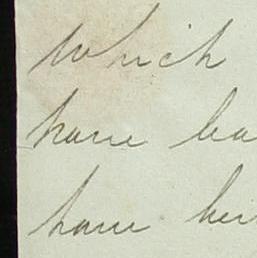 which
have ba
have